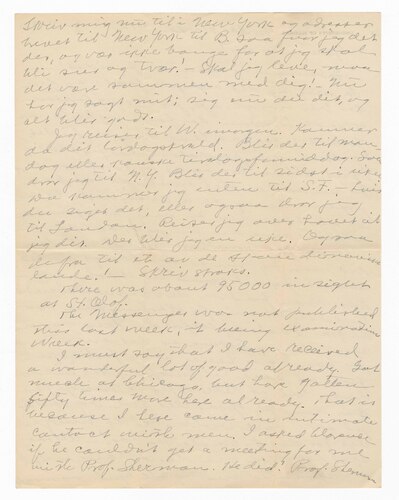 Skriv mig nu til i New York og adresser
brevet til New York til B saa faar jeg det
der, og vær ikke bange for at jeg skal
bli sur og tvær! - Skal jeg leve, maa
det være sammen med dig! - Nu
har jeg sagt mit; sig nu du dit, og
alt blir godt.
Jeg reiser til W. imorgen. Kommer
da dit lørdagskvæld. Blir der til man-
dag eller kanske tirsdagsformiddag. Saa
drar jeg til N.Y. Blir der til sidst i uken.
Da kommer jeg enten til S.F. - hvis
du siger det, eller ogsaa drar jeg
til London. Reiser jeg over havet
jeg dit. Der blir jeg en uke. Og saa
derfra til et av de skandinaviske
lande! - Skriv straks.
There was about 95000 in sight
at St. Olaf.
The Messenger was not published
this last week, it being examination
week.
I must say that I have received
a wonderful lot of good already. Got
much at Chicago, but have gotten
fifty times more here already. That is
because I here came in intimate
contact with men. I asked
if he couldn't get a meeting for me
with Prof. Sherman. He did! Prof. Sherman